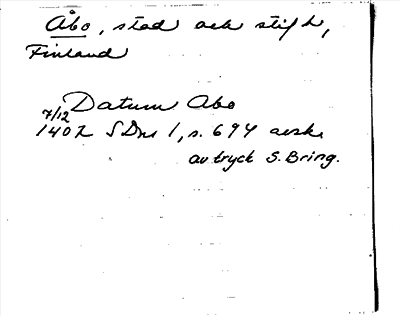 Åbo, stad och stift,
Finland
Datum Abo
7/12
1402 SDns 1, s. 694 avskr.
avtryck S. Bring.